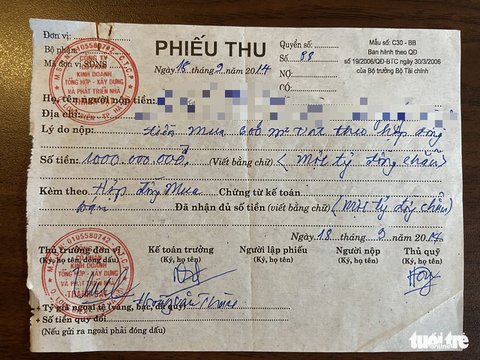 Đơn vị: Quyển số: Mẫu số: C30 - BB
Bộ phận PHIẾU THU Số 88 Ban hành theo QĐ
Mã đơn vị SDNS số 19/2006/QĐ-BTC ngày 30/3/2006
của Bộ trưởng Bộ Tài chính
Ngày 18 tháng 9 năm 2014 NỢ:
CÓ:
M.S.D.N: 0105580742 - C.T.C.P
CÔNG TY
KINH DOANH
TỔNG HỢP - XÂY DỰNG
VÀ PHÁT TRIỂN NHÀ
Họ, tên người nộp tiền:
Địa chỉ:
Lý do nộp: tiền mua 600 m² đất theo hợp đồng
Số tiền: 1000.000.000đ. (Viết bằng chữ) (Một tỷ đồng chẵn)
Kèm theo Hợp đồng mua Chứng từ kế toán
bán Đã nhận đủ số tiền (viết bằng chữ) (Một tỷ đồng chẵn)
Ngày 18 tháng 9 năm 2014
Thủ trưởng đơn vị Kế toán trưởng Người lập phiếu Người nộp Thủ quỹ
(Ký, họ tên, đóng dấu) (Ký, họ tên) (Ký, họ tên) (Ký, họ tên) (Ký, họ tên)
0105580742
KINH DOANH
TỔNG HỢP - XÂY DỰNG
VÀ PHÁT TRIỂN NHÀ
+ Tỷ giá ngoại tệ (vàng, bạc, đá quý)
+ Số tiền quy đổi
(Nếu gửi ra ngoài phải đóng dấu)
tuổi trẻ